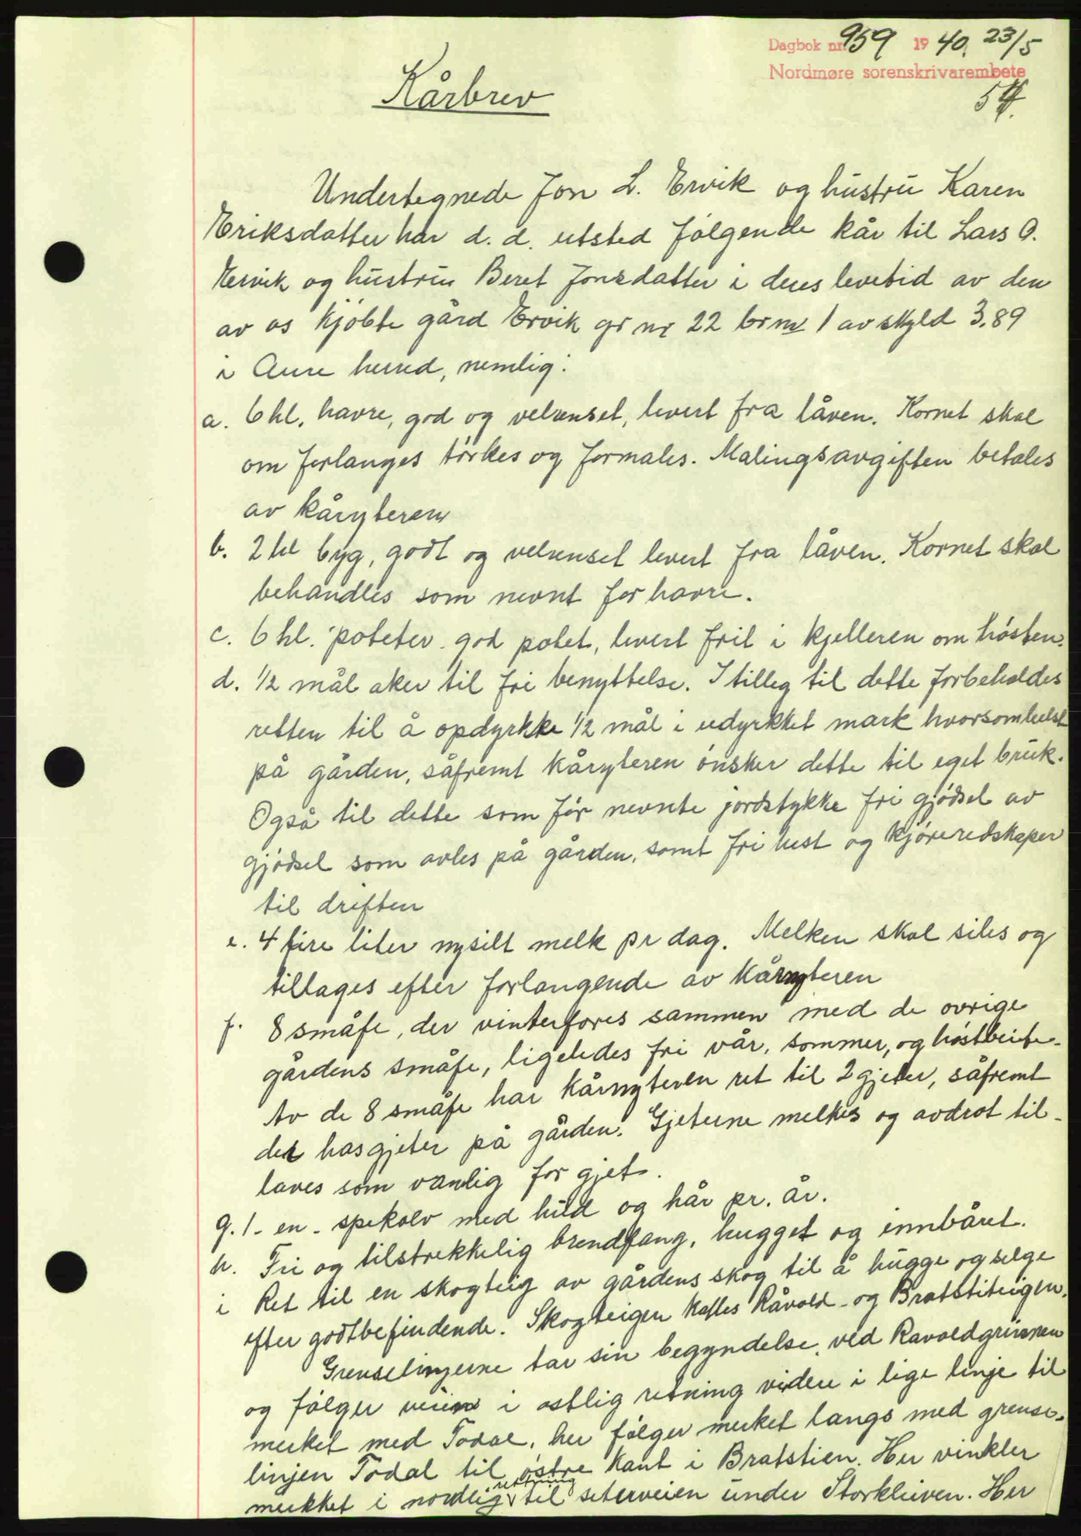 Dagbok nr 959 1940. 23/5
Nordmøre sorenskrivarembete
Kårbrev
Undertegnede Jon L. Ervik og hustru Karen
Eriksdatter har d. d. utsted følgende kår til Lars O.
Ervik og hustru Beret Jonsdatter i deres levetid av den
av os kjøbte gård Ervik gr nr 22 br nr 1 av skyld 3,89
i Aure herred, nemlig:
a. 6 hl. havre, god og velrenset, levert fra låven. Kornet skal
om forlanges tørkes og formales. Malingsavgiften betales
av kåryteren
b. 2 hl byg, godt og velrenset levert fra låven. Kornet skal
behandles som nevnt for havre.
c. 6 hl. poteter god potet, levert frit i kjelleren om høsten.
d. 1/2 mål aker til fri benyttelse. I tilleg til dette forbeholdes
retten til å opdyrkke 1/2 mål i udyrkket mark hvorsomhelst
på gården, såfremt kåryteren ønsker dette til eget bruk.
Også til dette som før nevnte jordstykke fri gjødsel av
gjødsel som avles på gården, samt fri hest og kjøreredskaper
til driften
e. 4 fire liter nysilt melk pr dag. Melken skal siles og
tillages efter forlangende av kårnyteren
f. 8 småfe, der vinterfores sammen med de øvrige
gårdens småfe, ligeledes fri vår, sommer, og høstbeite.
Av de 8 småfe har kårnyteren ret til 2 gjeter, såfremt
det has gjeter på gården. Gjeterne melkes og avdrot til-
laves som vanlig for gjet.
g. 1 - en - spekalv med hud og hår pr. år.
h. Fri og tilstrekkelig brendfang, hugget og innbåret.
i Ret til en skogteig av gårdens skog til å hugge og selge
efter godtbefindende. Skogteigen kalles Råvold - og Bratstiteigen.
Grenselinjerne tar sin begyndelse ved Ravoldgrinnen
og følger veien i østlig retning videre i lige linje til
merket med Todal, her følger merket langs med grense-
linjen Todal til østre kant i Bratstien. Her vinkler
merkket i nordlig retning til seterveien under Storkleiven. Her